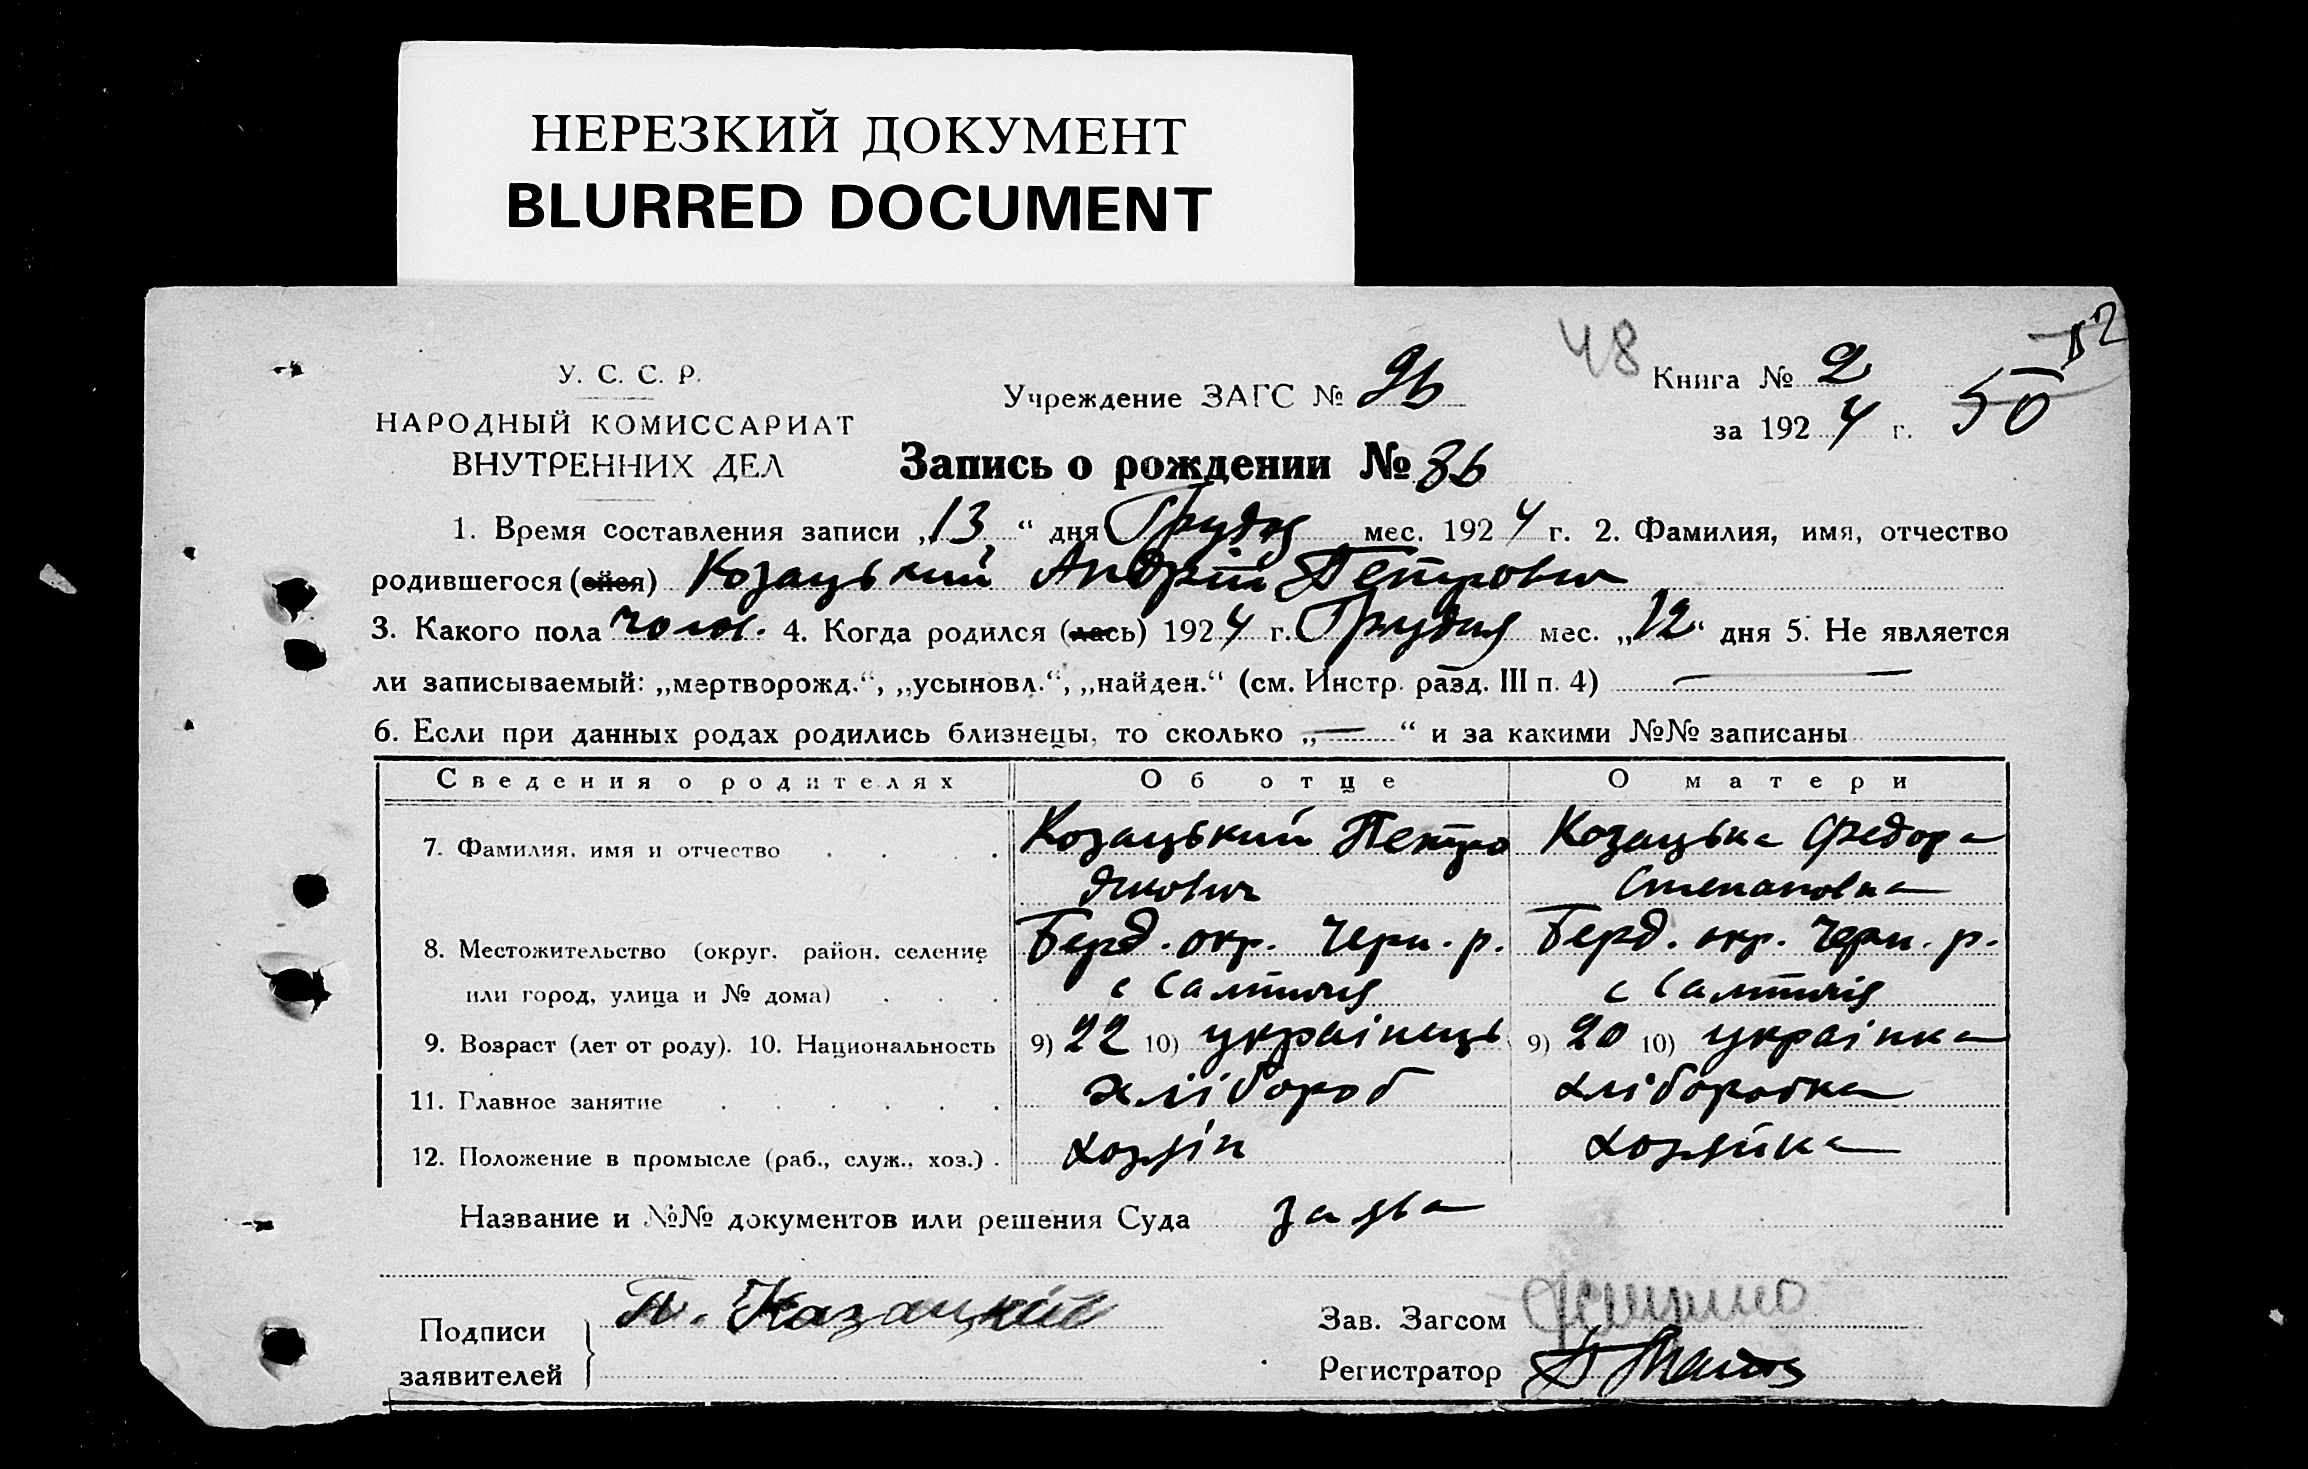 НЕРЕЗКИЙ ДОКУМЕНТ
BLURRED DOCUMENT
48
У. С. С. Р.
НАРОДНЫЙ КОМИССАРИАТ
ВНУТРЕННИХ ДЕЛ
Учреждение ЗАГС №
Книга № 2
50
за 1924 г.
Запись о рождении № 86
1. Время составления записи „13“ дня Грудня мес. 1924 г. 2. Фамилия, имя, отчество
родившегося (ейся) Козацький Андрій Петрович
3. Какого пола чолов. 4. Когда родился (лась) 1924 г. Грудня мес. „12“ дня 5. Не является
ли записываемый: „мертворожд.“, „усыновл.“, „найден.“ (см. Инстр. разд. III п. 4) —
6. Если при данных родах родились близнецы, то сколько „—“ и за какими №№ записаны
Сведения о родителях Об отце О матери
7. Фамилия, имя и отчество Козацький Петро Козацька Федора
Якович Степановна
8. Местожительство (округ, район, селение Берд. окр. Черн. р. Берд. окр. Черн. р.
или город, улица и № дома) с с
9. Возраст (лет от роду). 10. Национальность 9) 22 10) українець 9) 20 10) українка
11. Главное занятие хлібороб хліборобка
12. Положение в промысле (раб., служ., хоз.) хозяїн хозяйка
Название и №№ документов или решения Суда заява
Подписи П. Казацкий Зав. Загсом
заявителей Регистратор